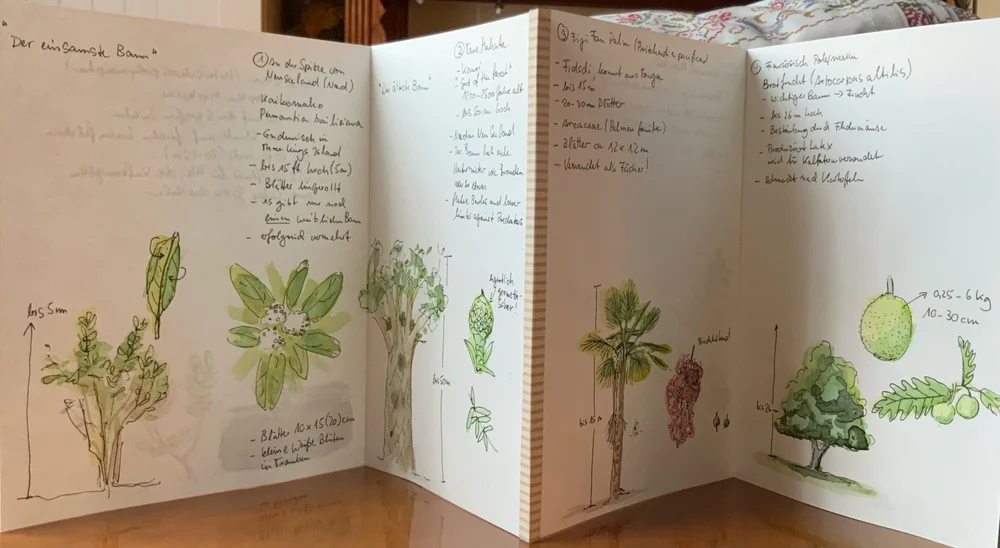 "Der einsamste Baum"
① An der Spitze von
Neuseeland (Nord)
Kaikomako
Pennantia baylisiana
- Endemisch in
Three Kings Island
- bis 15 ft hoch (5m)
- Blätter eingerollt
- es gibt nur noch
einen weiblichen Baum
- erfolgreich vermehrt
bis 5m
- Blätter 10 x 15 (20) cm
- kleine weiße Blüten
in Trauben
② Tane Mahuta
"Der älteste Baum"
- Kauri
- "God of the forest"
- 1250-2500 Jahre alt
- bis 50 m hoch
- Der Baum hat viele
bis 50m
③ Fiji Fan Palm (Pritchardia pacifica)
- Fidschi, kommt aus Tonga
- bis 15 m
- 20-30 Blätter
- Areaceae (Palmen familie)
- Blätter ca 12 x 12 m
- Verwendet als Fächer!
bis 15 m
Fruchtstand
Französisch Polynesien
Brotfrucht (Artocarpus altilis)
- wichtiger Baum → Frucht
- bis 26 m hoch
- Bestäubung durch Fledermäuse
- Produziert Latex
wird für Kalfatern verwendet
- schmeckt nach Kartoffeln
0,25-6 kg
10-30 cm
bis 26